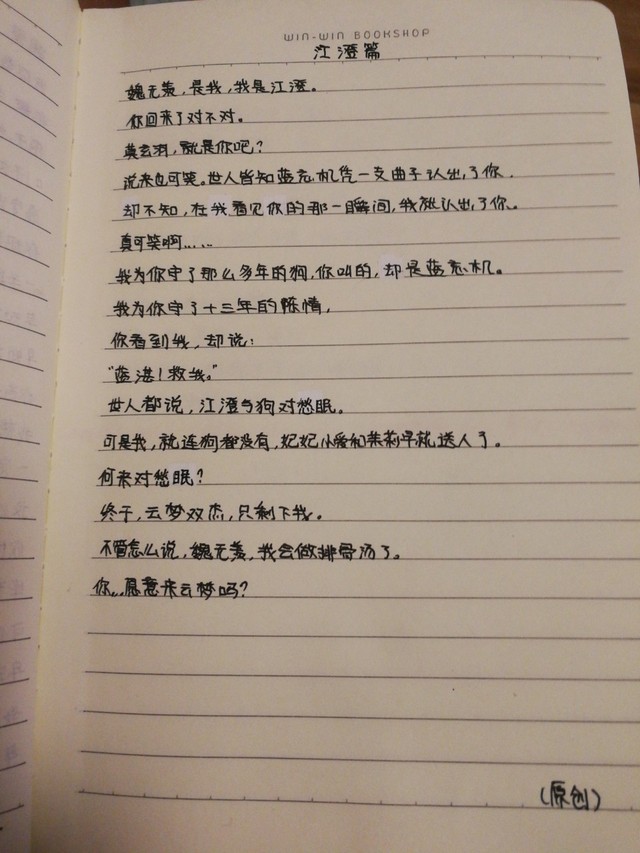 WIN-WIN BOOKSHOP
江澄篇
魏无羡,是我,我是江澄。
你回来了对不对。
莫玄羽,就是你吧?
说来也可笑。世人皆知蓝忘机凭一支曲子认出了你.
却不知,在我看见你的那一瞬间,我就认出了你。
真可笑啊……
我为你守了那么多年的狗,你叫的,却是蓝忘机。
我为你守了十三年的陈情,
你看到我,却说:
“蓝湛!救我。”
世人都说,江澄与狗对愁眠。
可是我,就连狗都没有,妃妃小爱和茉莉早就送人了。
何来对愁眠?
终于,云梦双杰,只剩下我。
不管怎么说,魏无羡,我会做排骨汤了。
你...愿意来云梦吗?
(原创)